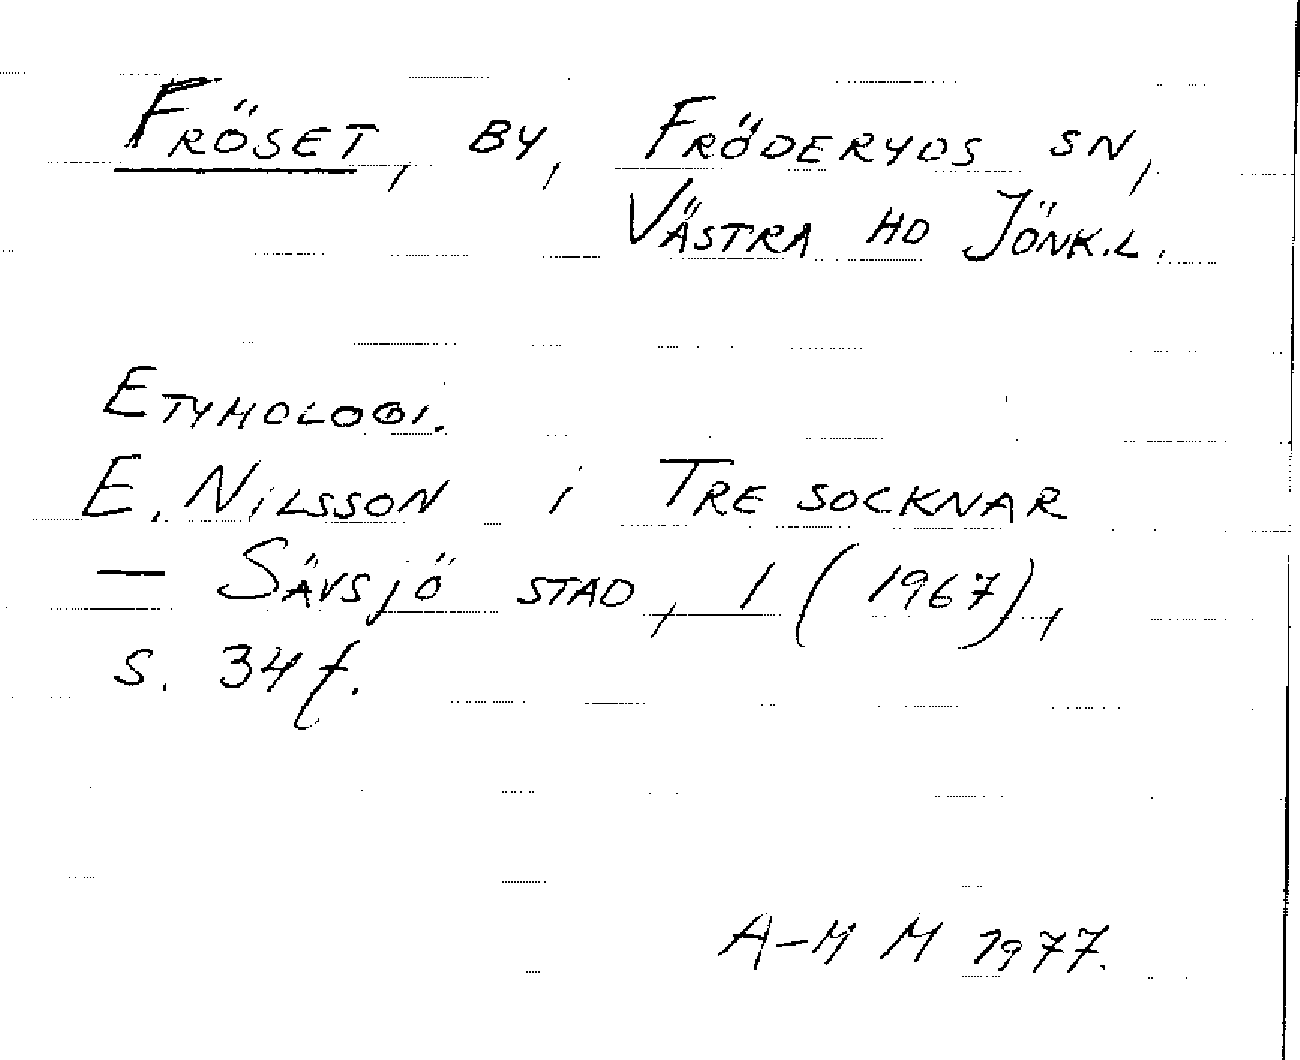 FRÖSET, BY, FRÖDERYDS SN,
VÄSTRA HD JÖNK.L.
ETYMOLOGI.
E. NILSSON i TRE SOCKNAR
— SÄVSJÖ STAD, 1 (1967),
S. 34 f.
A-M M 1977.